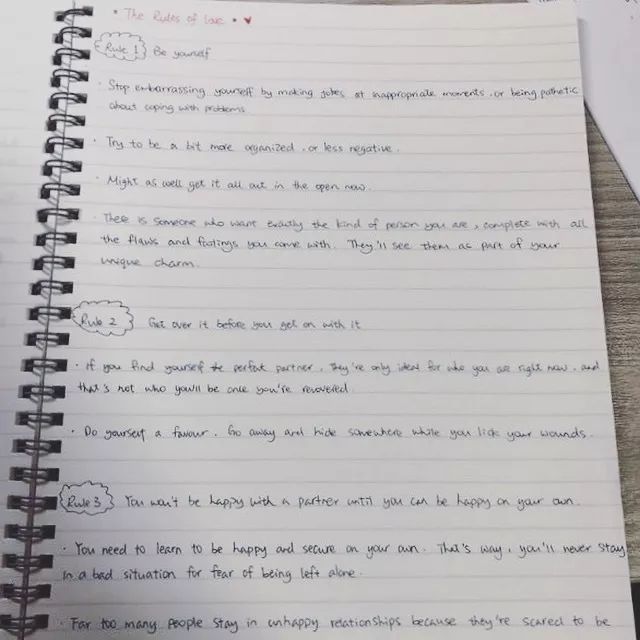 • The Rules of Love • ♥
Rule 1 Be yourself
· Stop embarrassing yourself by making jokes at inappropriate moments. or being pathetic
about coping with problems
· Try to be a bit more organized. or less negative.
· Might as well get it all out in the open now.
· There is someone who want exactly the kind of person you are, complete with all
the flaws and foolings you come with. They'll see them as part of your
unique charm.
Rule 2 Get over it before you get on with it
· If you find yourself the perfect partner. They're only ideal for who you are right now. and
that's not who you'll be once you're recovered.
· Do yourself a favour. Go away and hide somewhere while you lick your wounds.
Rule 3 You won't be happy with a partner until you can be happy on your own.
· You need to learn to be happy and secure on your own. That's way, you'll never stay
in a bad situation for fear of being left alone.
· Far too many people stay in unhappy relationships because they're scared to be